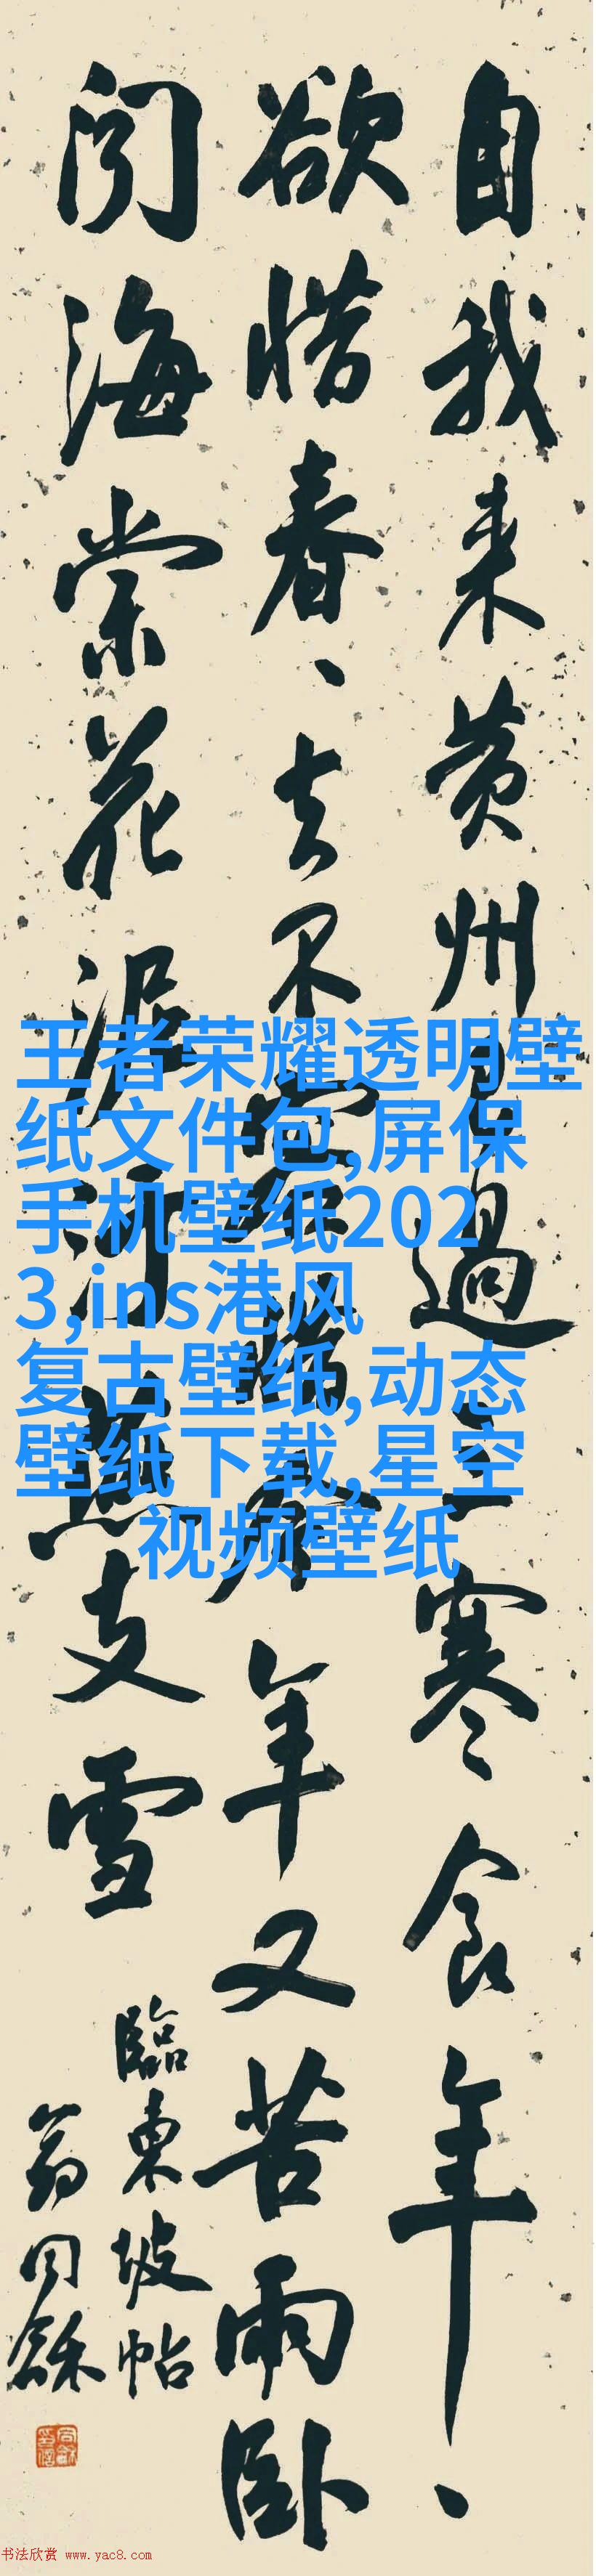 自我来黄州
過
寒食年、
欲惜春、去不
年又苦雨卧
闻海棠花泥
支雪
臨東坡帖
翁同龢
王者荣耀透明壁
纸文件包,屏保
手机壁纸202
3,ins港风
复古壁纸,动态
壁纸下载,星空
视频壁纸
书法欣赏 www.yac8.com